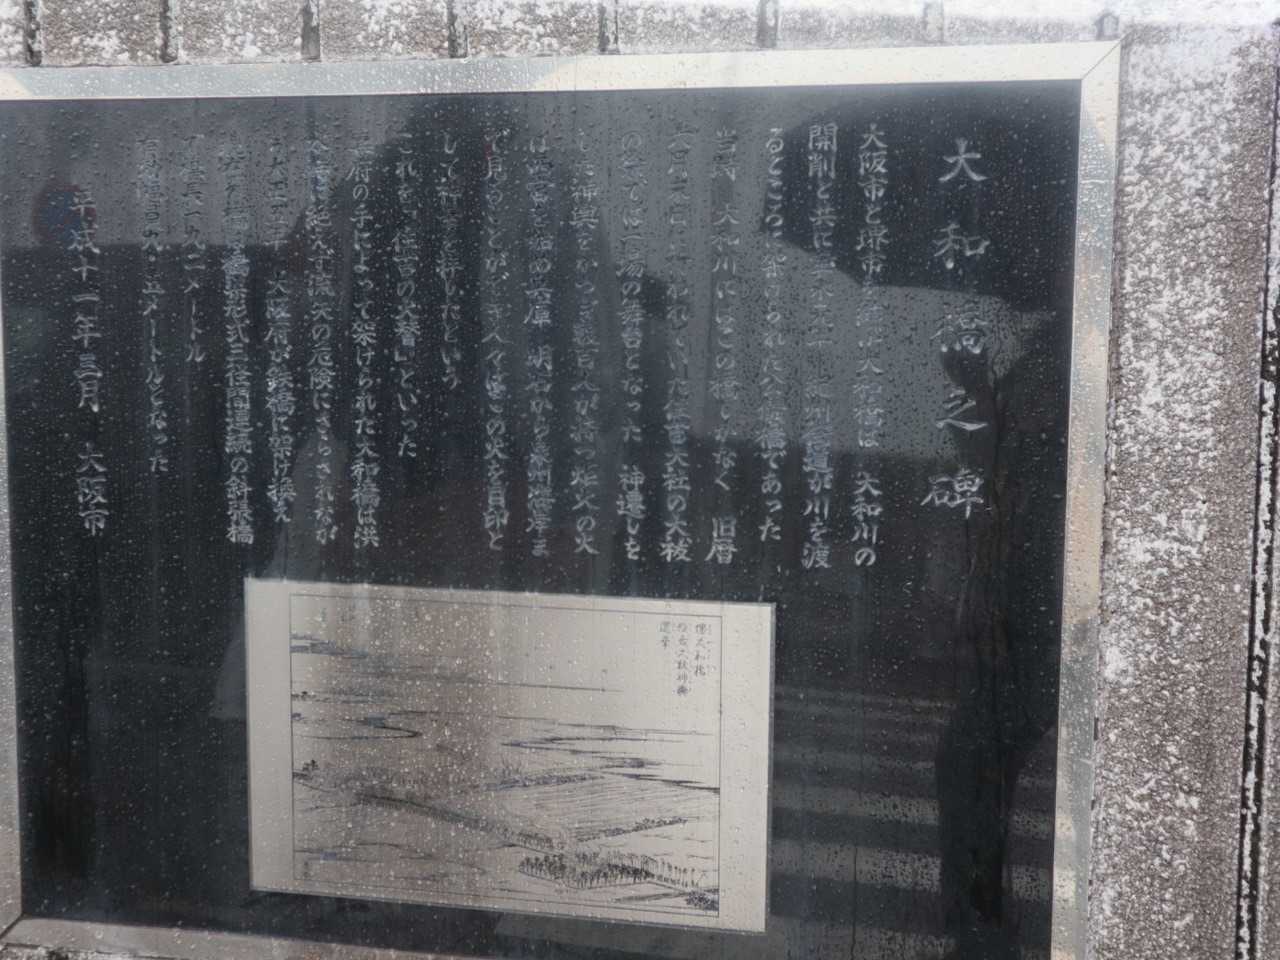 大和橋之碑
大阪市と堺市を結ぶ大和橋は 大和川の
開削と共に 紀州街道が川を渡
るところに架けられた公儀橋であった
当時 大和川にはこの橋しかなく 旧暦
六月 に行われていた住吉大社の大祓
の祭では 湯の舞台となった 神遷しを
した神輿をかつぎ数百人が持つ炬火の火
は 始め兵庫 明石から泉州海岸ま
で見ることができ 人々はこの火を目印と
して神事を拝したという
これを「住吉の火替」といった
府の手によって架けられた大和橋は洪
水 絶えず流失の危険にさらされなが
大阪府が鉄橋に架け換え
橋梁形式三径間連続の斜張橋
で橋長一九二メートル
有効幅員 九・五メートルとなった
平成十一年三月 大阪市
大和橋
住吉大社神輿
還幸